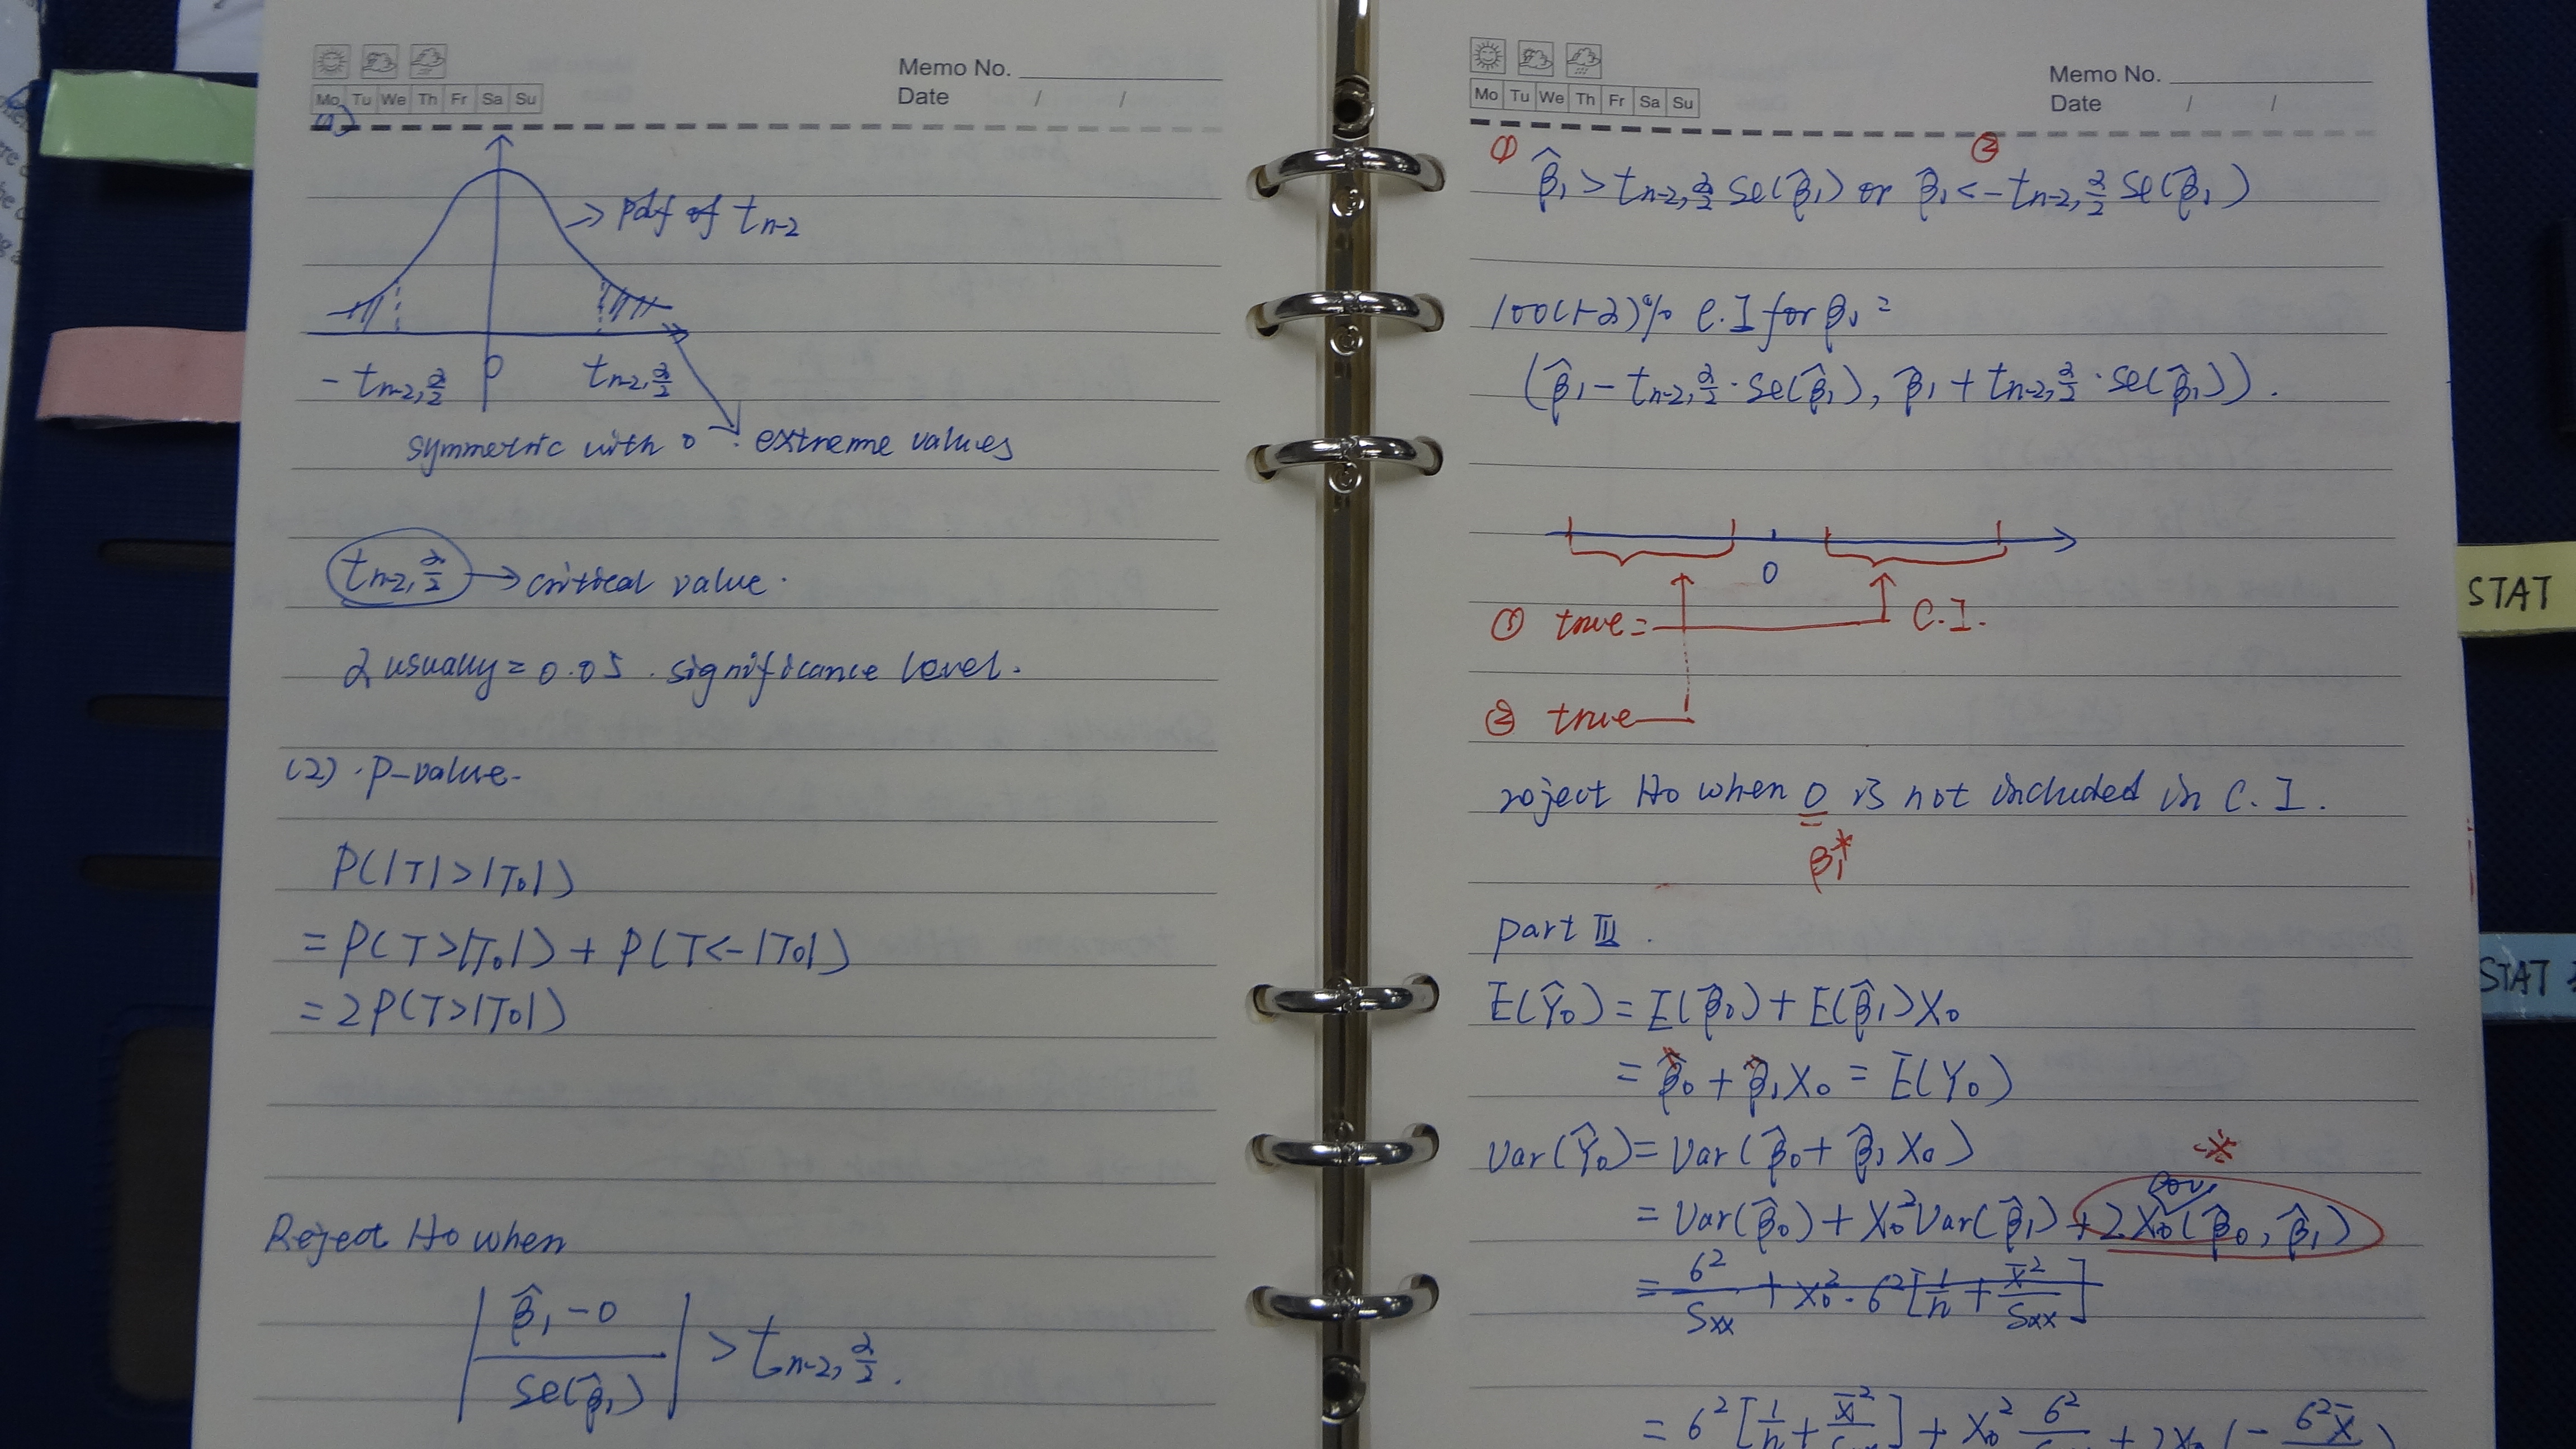 Memo No.
Mo Tu We Th Fr Sa Su
Date / /
(1)
→ pdf of t_{n-2}
-t_{n-2, α/2} 0 t_{n-2, α/2}
symmetric with 0 . extreme values
t_{n-2, α/2} → critical value .
α usually = 0.05 . significance level .
(2) . P-value.
P(|T| > |T₀|)
= P(T > |T₀|) + P(T < -|T₀|)
= 2P(T > |T₀|)
Reject H₀ when
| (β̂₁ - 0) / se(β̂₁) | > t_{n-2, α/2} .
Memo No.
Mo Tu We Th Fr Sa Su
Date / /
① ②
β̂₁ > t_{n-2, α/2} se(β̂₁) or β̂₁ < -t_{n-2, α/2} se(β̂₁)
100(1-α)% C.I for β₁ =
(β̂₁ - t_{n-2, α/2} · se(β̂₁), β̂₁ + t_{n-2, α/2} · se(β̂₁)) .
0
① true = C.I.
② true
reject H₀ when 0 is not included in C.I.
β₁*
part III .
E(Ŷ₀) = E(β̂₀) + E(β̂₁)X₀
= β₀ + β₁X₀ = E(Y₀)
Var(Ŷ₀) = Var(β̂₀ + β̂₁X₀)
*
Cov
= Var(β̂₀) + X₀² Var(β̂₁) + 2X₀(β̂₀, β̂₁)
= σ²/Sxx + X₀² · σ² [1/n + x̄²/Sxx]
= σ² [1/n + x̄²/ ] + X₀² σ²/ + 2X₀ (- σ²x̄/ )
STAT
STAT